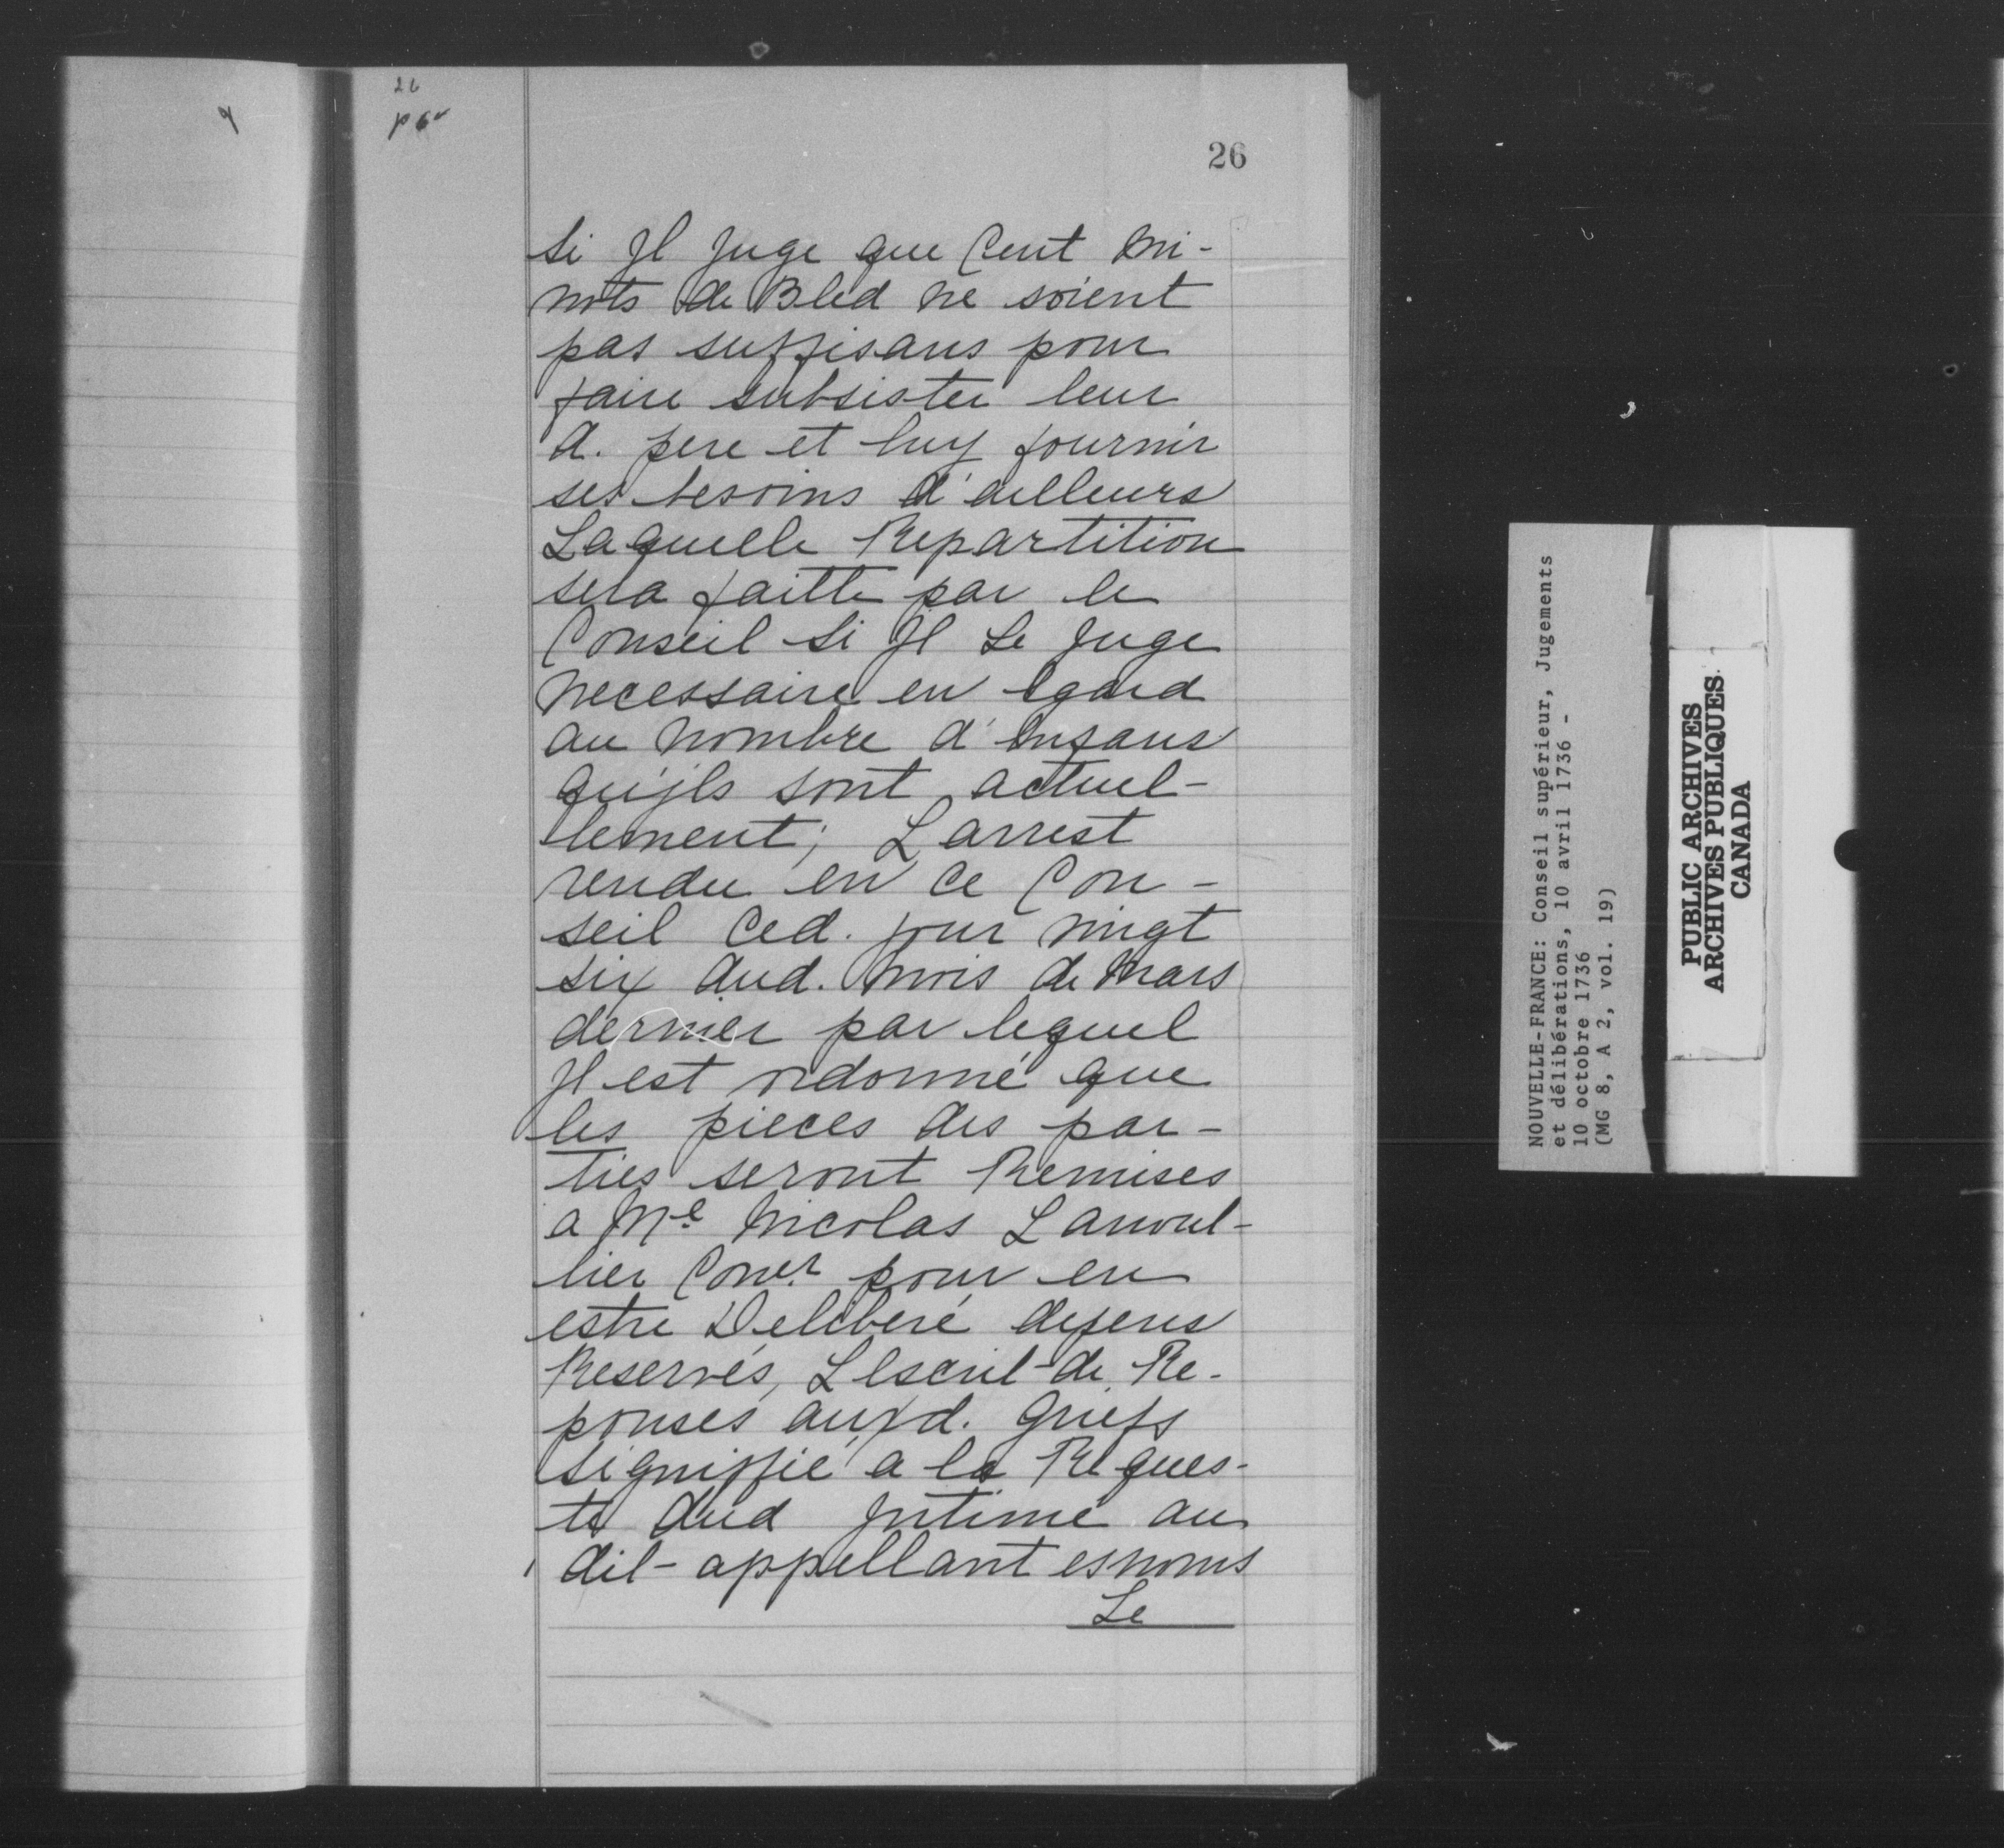 26
26
Si Jl Juge que Cent Mi-
nots de Bled ne soient
pas suffisans pour
faire subsister leur
d. pere et luy fournir
ses besoins d'ailleurs
Laquelle Repartition
sera faitte par le
Conseil Si Jl Le Juge
necessaire en Egard
au nombre d'Enfans
qu'jls sont actuel-
lement; L'arrest
rendu en Ce Con-
seil Ced. jour vingt
six dud. mois de Mars
dernier par lequel
Jl est ordonné que
les pieces des par-
ties seront Remises
a Me Nicolas Lanoul-
lier Coner pour en
estre Deliberé depens
Reservés, L'Escrit de Re-
ponses auxd. Griefs
signiffié a la Reques-
te dud Jntimé au
dit appellant esnoms
Le
NOUVELLE-FRANCE: Conseil supérieur, Jugements
et délibérations, 10 avril 1736 -
10 octobre 1736
(MG 8, A 2, vol. 19)
PUBLIC ARCHIVES
ARCHIVES PUBLIQUES
CANADA